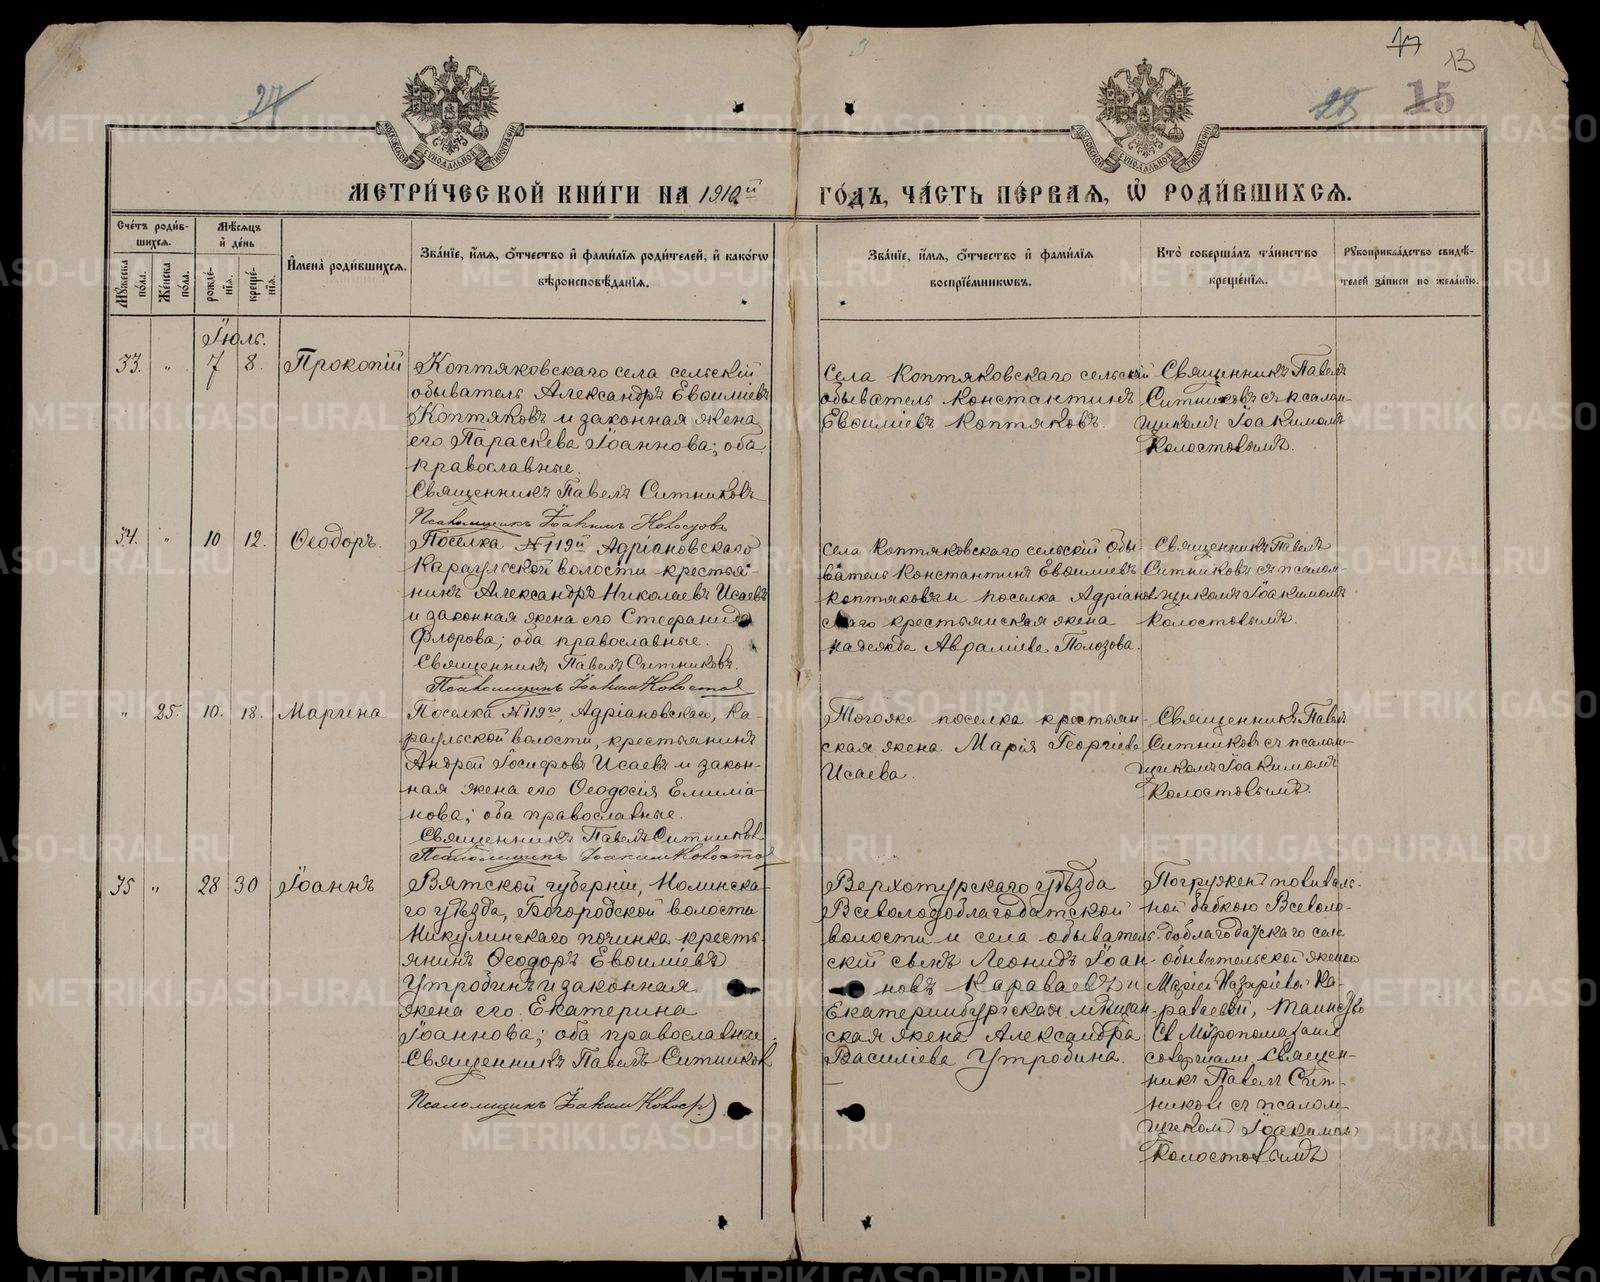 27
17
13
22
15
МЕТРИ́ЧЕСКОЙ КНИ́ГИ НА 1910й ГО́ДЪ, ЧА́СТЬ ПЕ́РВАЯ, Ѡ РОДИ́ВШИХСЯ.
Сче́тъ роди́вшихся.
Му́жеска по́ла.
Же́нска по́ла.
Мѣ́сяцъ и де́нь
рожде́нія.
креще́нія.
Имена̀ роди́вшихся.
Зва́ніе, и́мя, о́тчество и фами́лія роди́телей, и како́гѡ
вѣроисповѣ́данія.
Зва́ніе, и́мя, о́тчество и фами́лія
воспріе́мникѡвъ.
Кто̀ соверша́лъ та́инство
креще́нія.
Рукоприкла́дство свидѣ́-
телей за́писи по жела́нію.
Іюль.
33. " 7 8. Прокопій
Коптяковскаго села сельскій
обыватель Александръ Евѳиміевъ
Коптяковъ и законная жена
его Параскева Іоаннова; оба
православные.
Священникъ Павелъ Ситниковъ
Псаломщикъ Іоакимъ Колостовъ
Села Коптяковскаго сельскій
обыватель Константинъ
Евѳиміевъ Коптяковъ.
Священникъ Павелъ
Ситниковъ съ псалом-
щикомъ Іоакимомъ
Колостовымъ.
34. " 10 12. Ѳеодоръ.
Поселка №119й Адріановскаго
Караульской волости крестья-
нинъ Александръ Николаевъ Исаевъ
и законная жена его Стефанида
Флорова; оба православные.
Священникъ Павелъ Ситниковъ.
Псаломщикъ Іоакимъ Колостов
Села Коптяковскаго сельскій обы-
ватель Константинъ Евѳиміевъ
Коптяковъ и поселка Адріанов-
скаго крестьянская жена
Надежда Авраміева Полозова.
Священникъ Павелъ
Ситниковъ съ псалом-
щикомъ Іоакимомъ
Колостовымъ.
" 25. 10. 18. Марина
Поселка №119го, Адріановскаго, Ка-
раульской волости, крестьянинъ
Андрей Іосифовъ Исаевъ и закон-
ная жена его Ѳеодосія Емиліа-
нова; оба православные.
Священникъ Павелъ Ситниковъ
Псаломщикъ Іоакимъ Колостов
Тогоже поселка крестьян-
ская жена Марія Георгіева
Исаева.
Священникъ Павелъ
Ситниковъ съ псалом-
щикомъ Іоакимомъ
Колостовымъ.
35 " 28 30 Іоаннъ
Вятской губерніи, Нолинска-
го уѣзда, Богородской волости
Никулинскаго починка кресть-
янинъ Ѳеодоръ Евѳиміевъ
Утробинъ и законная
жена его Екатерина
Іоаннова; оба православные.
Священникъ Павелъ Ситников
Псаломщикъ Іоаким
Верхотурскаго уѣзда
Всеволодоблагодатской
волости и села обыватель-
скій сынъ Леонидъ Іоан-
новъ Караваевъ и
Екатеринбургская мѣщан-
ская жена Александра
Василіева Утробина.
Погруженъ повиваль-
ной бабкою Всеволо-
доблагодатскаго села
обывательской женою
Маріей Назаріевой Ка-
раваевой, Таинство
Св. Мѵропомазанія
совершали священ-
никъ Павелъ Сит-
никовъ съ псалом-
щикомъ Іоакимомъ
Колостовымъ